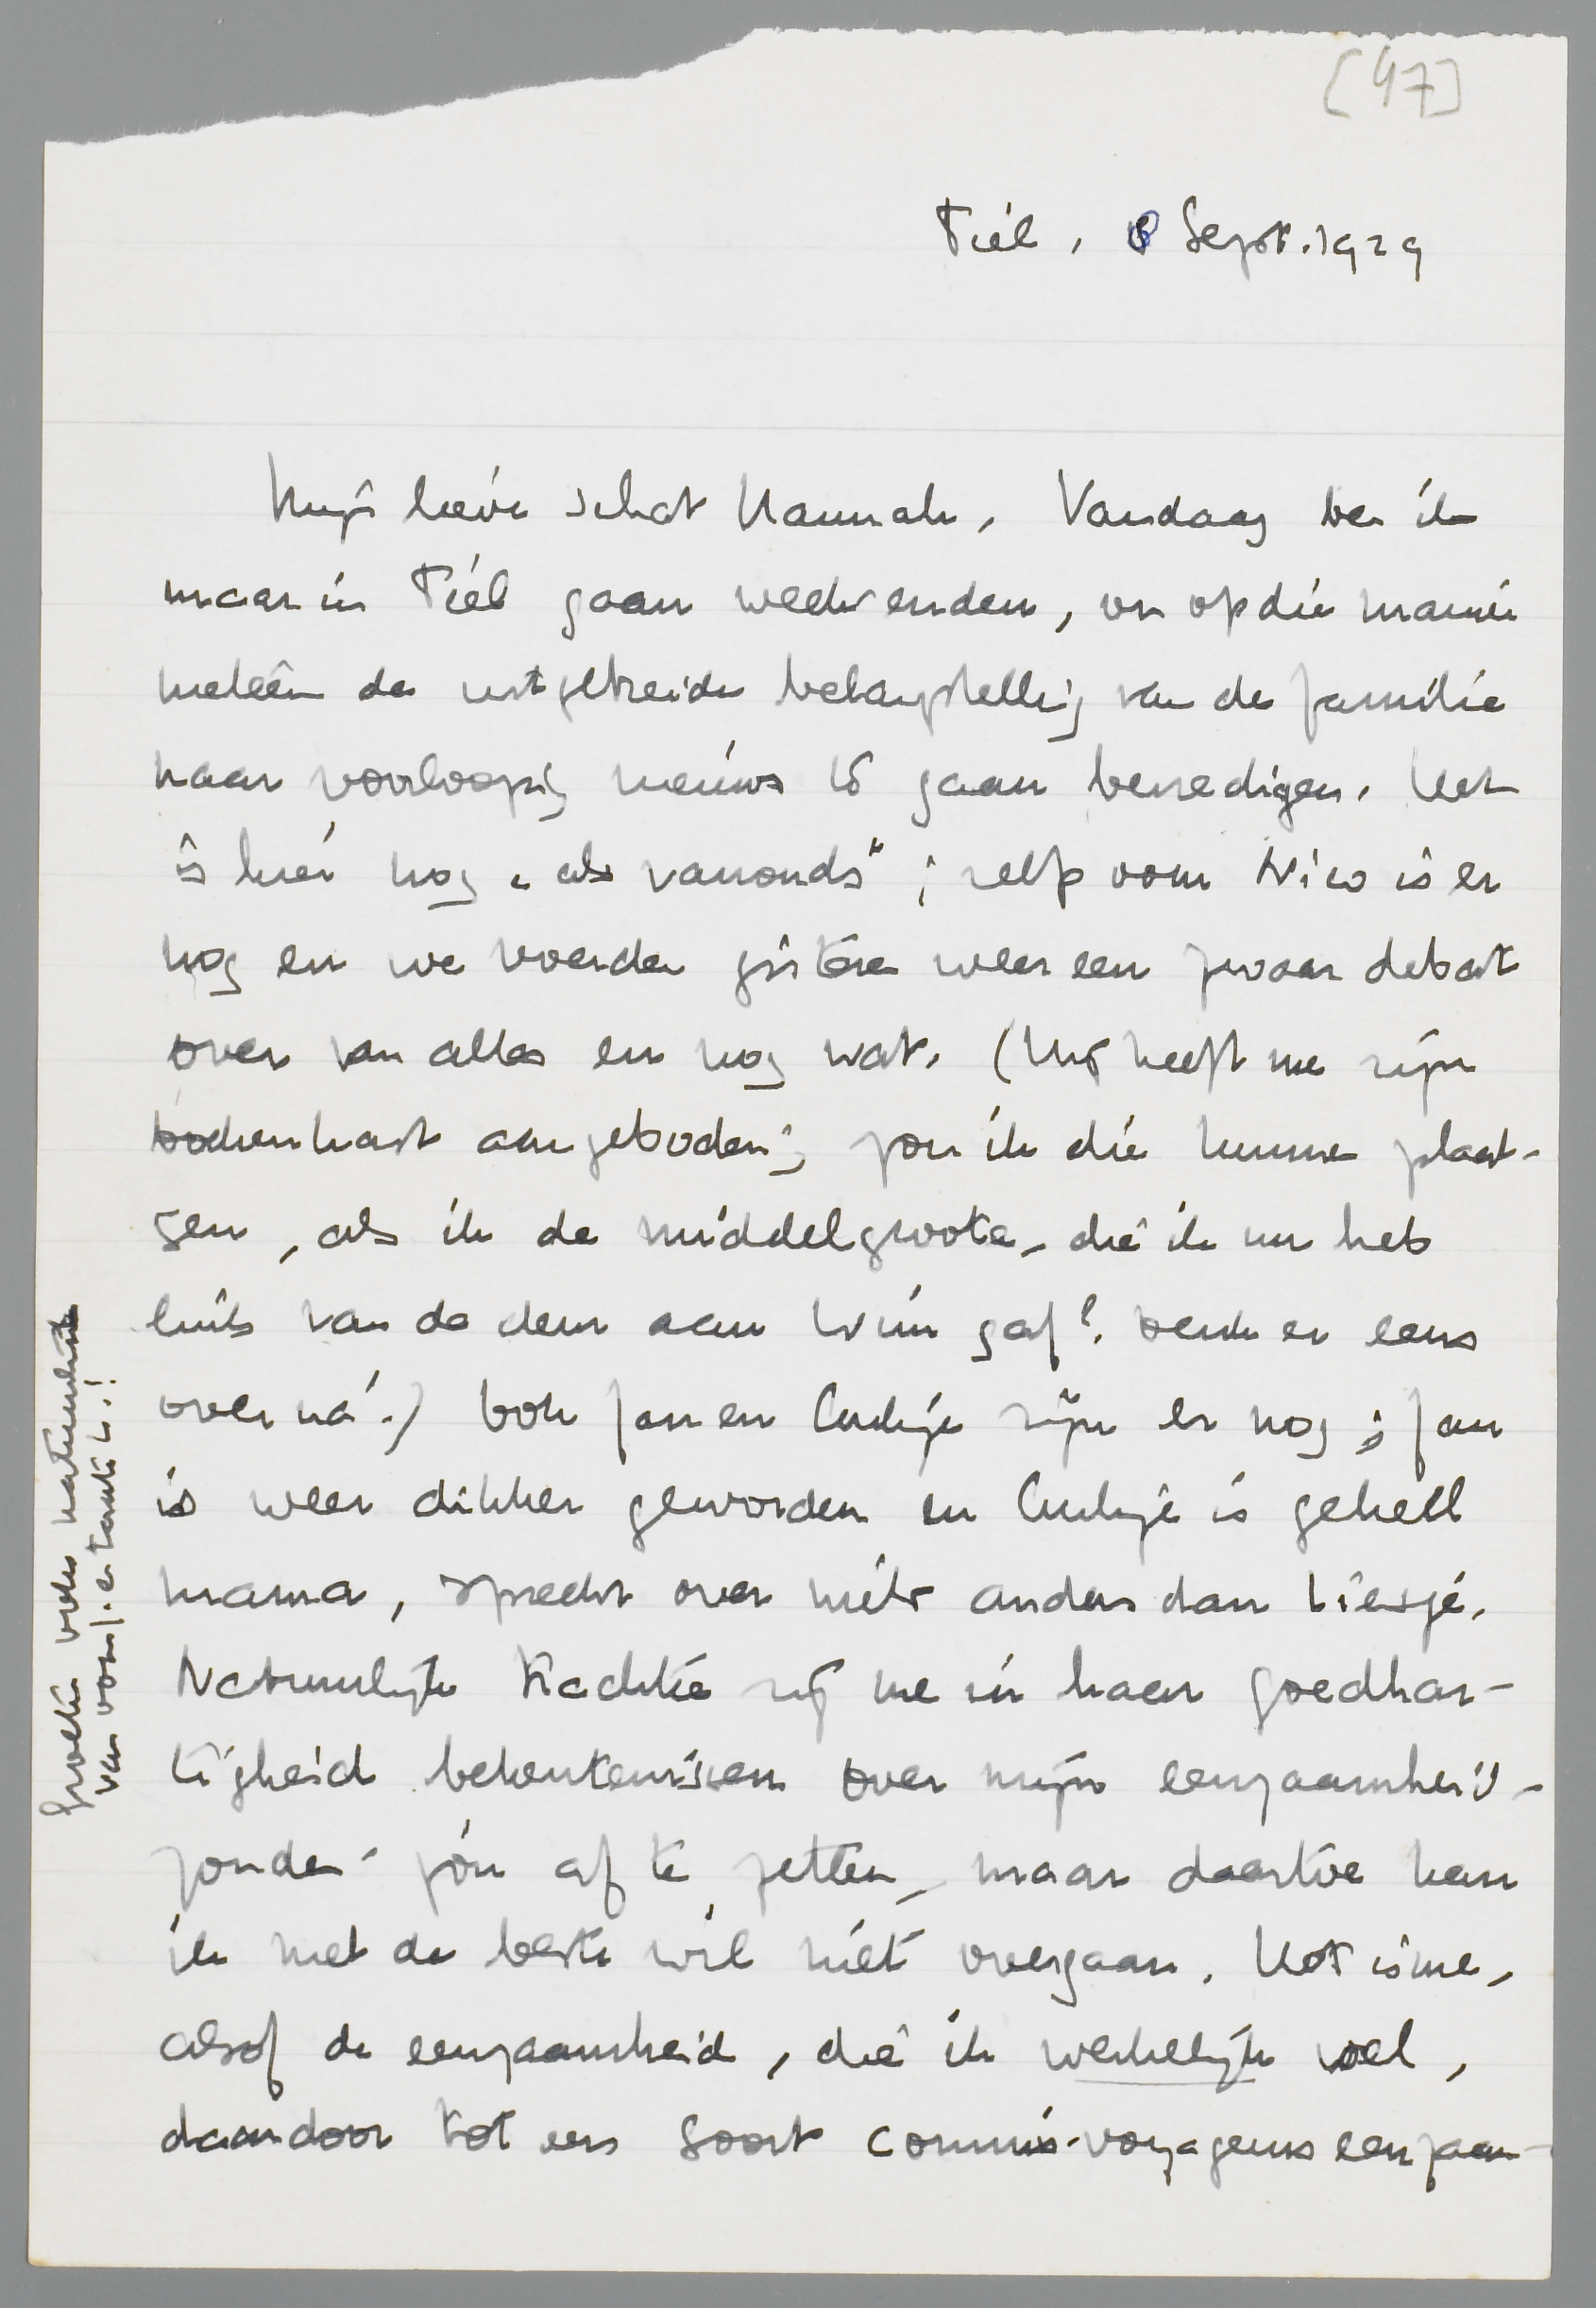 [47]
Tiel, 8 Sept. 1929
Mijn lieve schat Hannah, Vandaag ben ik
maar in Tiel gaan weekenden, om op die manier
meteen de uitgebreide belangstelling van de familie
naar voorloopig nieuws te gaan bevredigen. Het
is hier nog „als vanouds"; zelfs oom Nico is er
nog en we voerden gisteren weer een zwaar debat
over van alles en nog wat. (Hij heeft me zijn
boekenkast aangeboden; zou ik die kunnen plaat-
sen, als ik de middelgroote, die ik nu heb
links van de deur aan Wim gaf? Denk er eens
over na!) Ook Jan en Cudije zijn er nog; Jan
is weer dikker geworden en Cudije is geheel
mama, spreekt over niets anders dan Liesje.
Natuurlijk trachtte zij me in haar goedhar-
tigheid bekentenissen over mijn eenzaamheid
zonder jóu af te zetten, maar daartoe kan
ik met de beste wil niet overgaan. Het is me,
alsof de eenzaamheid, die ik werkelijk voel,
daardoor tot een soort commis-voyageurs eenzaam-
Groeten v. ouders natuurlijk
van oom J. en tante L.!